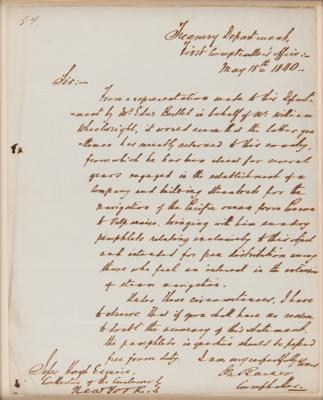 54.
Treasury Department,
First Comptroller's Office,
May 18th 1840.
Sir:—
From a representation made to this Depart-
ment by Mr in behalf of Mr William
Wheelwright, it would seem that the latter gen-
tleman has recently returned to this country,
from which he has been absent for several
years engaged in the establishment of a
company and building steamboats for the
navigation of the Pacific ocean from Panama
to Valparaiso, bringing with him sundry
pamphlets relating exclusively to this object
and intended for free distribution among
those who feel an interest in the extension
of steam navigation.
Under these circumstances, I have
to observe that if you shall have no reason
to doubt the accuracy of this statement,
the pamphlets in question should be passed
free from duty. I am, very respectfully yours
Barker
Comptroller.
Jesse Hoyt Esquire,
Collector of the Customs
New York.